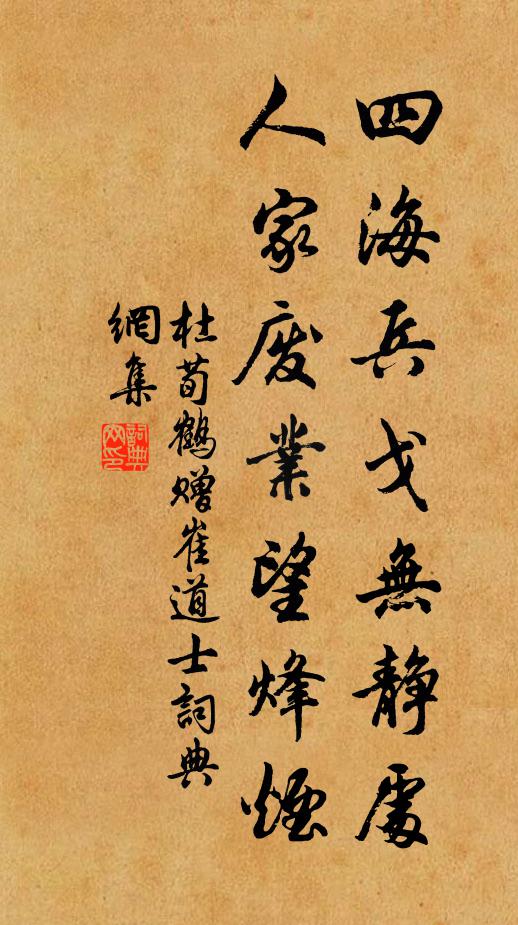 四海兵戈無静處
人家废業望烽煙
杜荀鶴赠崔道士詞典
網集
詞典
网印